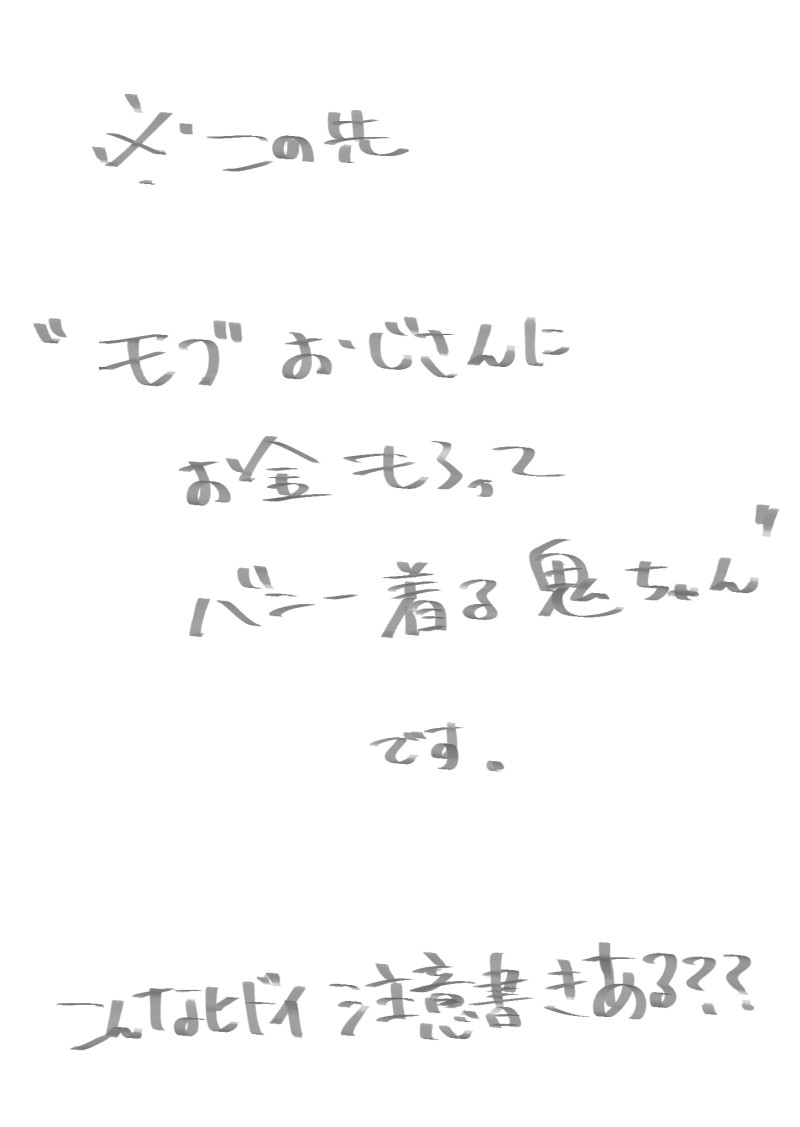 ※この先
〝モブ〞おじさんに
お金もらって
バニー着る鬼ちゃん〞
です。
こんなヒドイ注意書きある??